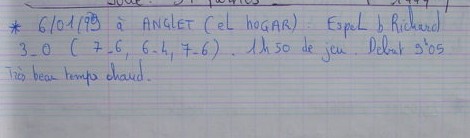 * 6/01/99 à ANGLET (el hOGAR). Espel b Richard
3_0 (7_6, 6_4, 7_6). 1h50 de jeu. Début 9h05
Très beau temps chaud.